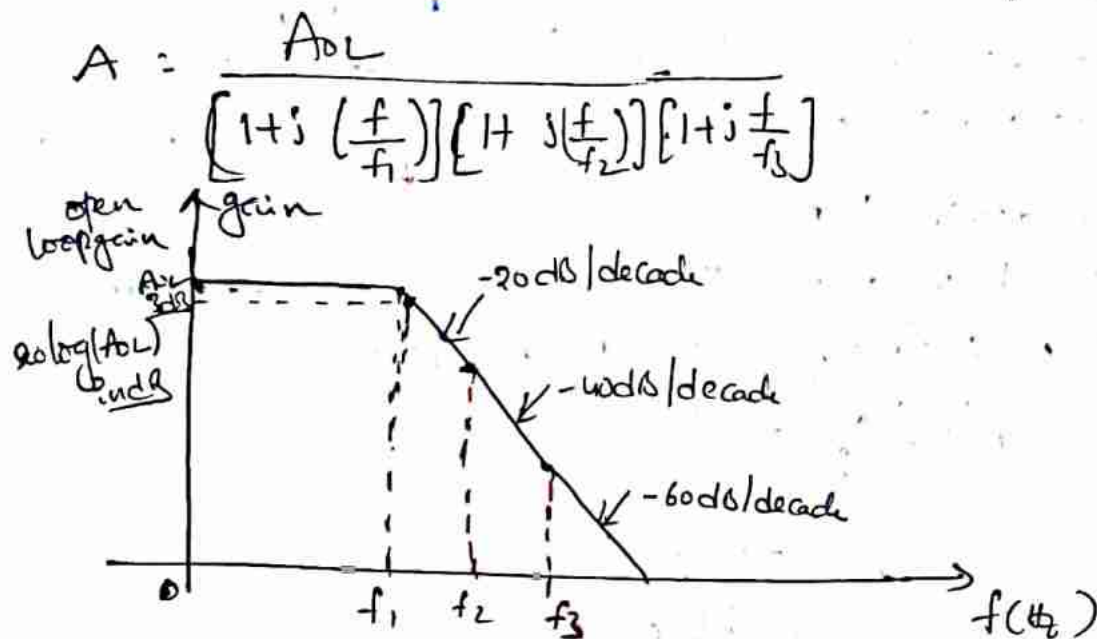 A = AOL
[1+j (f/f1)] [1+ j(f/f2)] [1+j f/f3]
open loop gain
gain
AOL
3dB
20log(AOL)
in dB
-20dB/decade
-40dB/decade
-60dB/decade
0
f1
f2
f3
f(Hz)